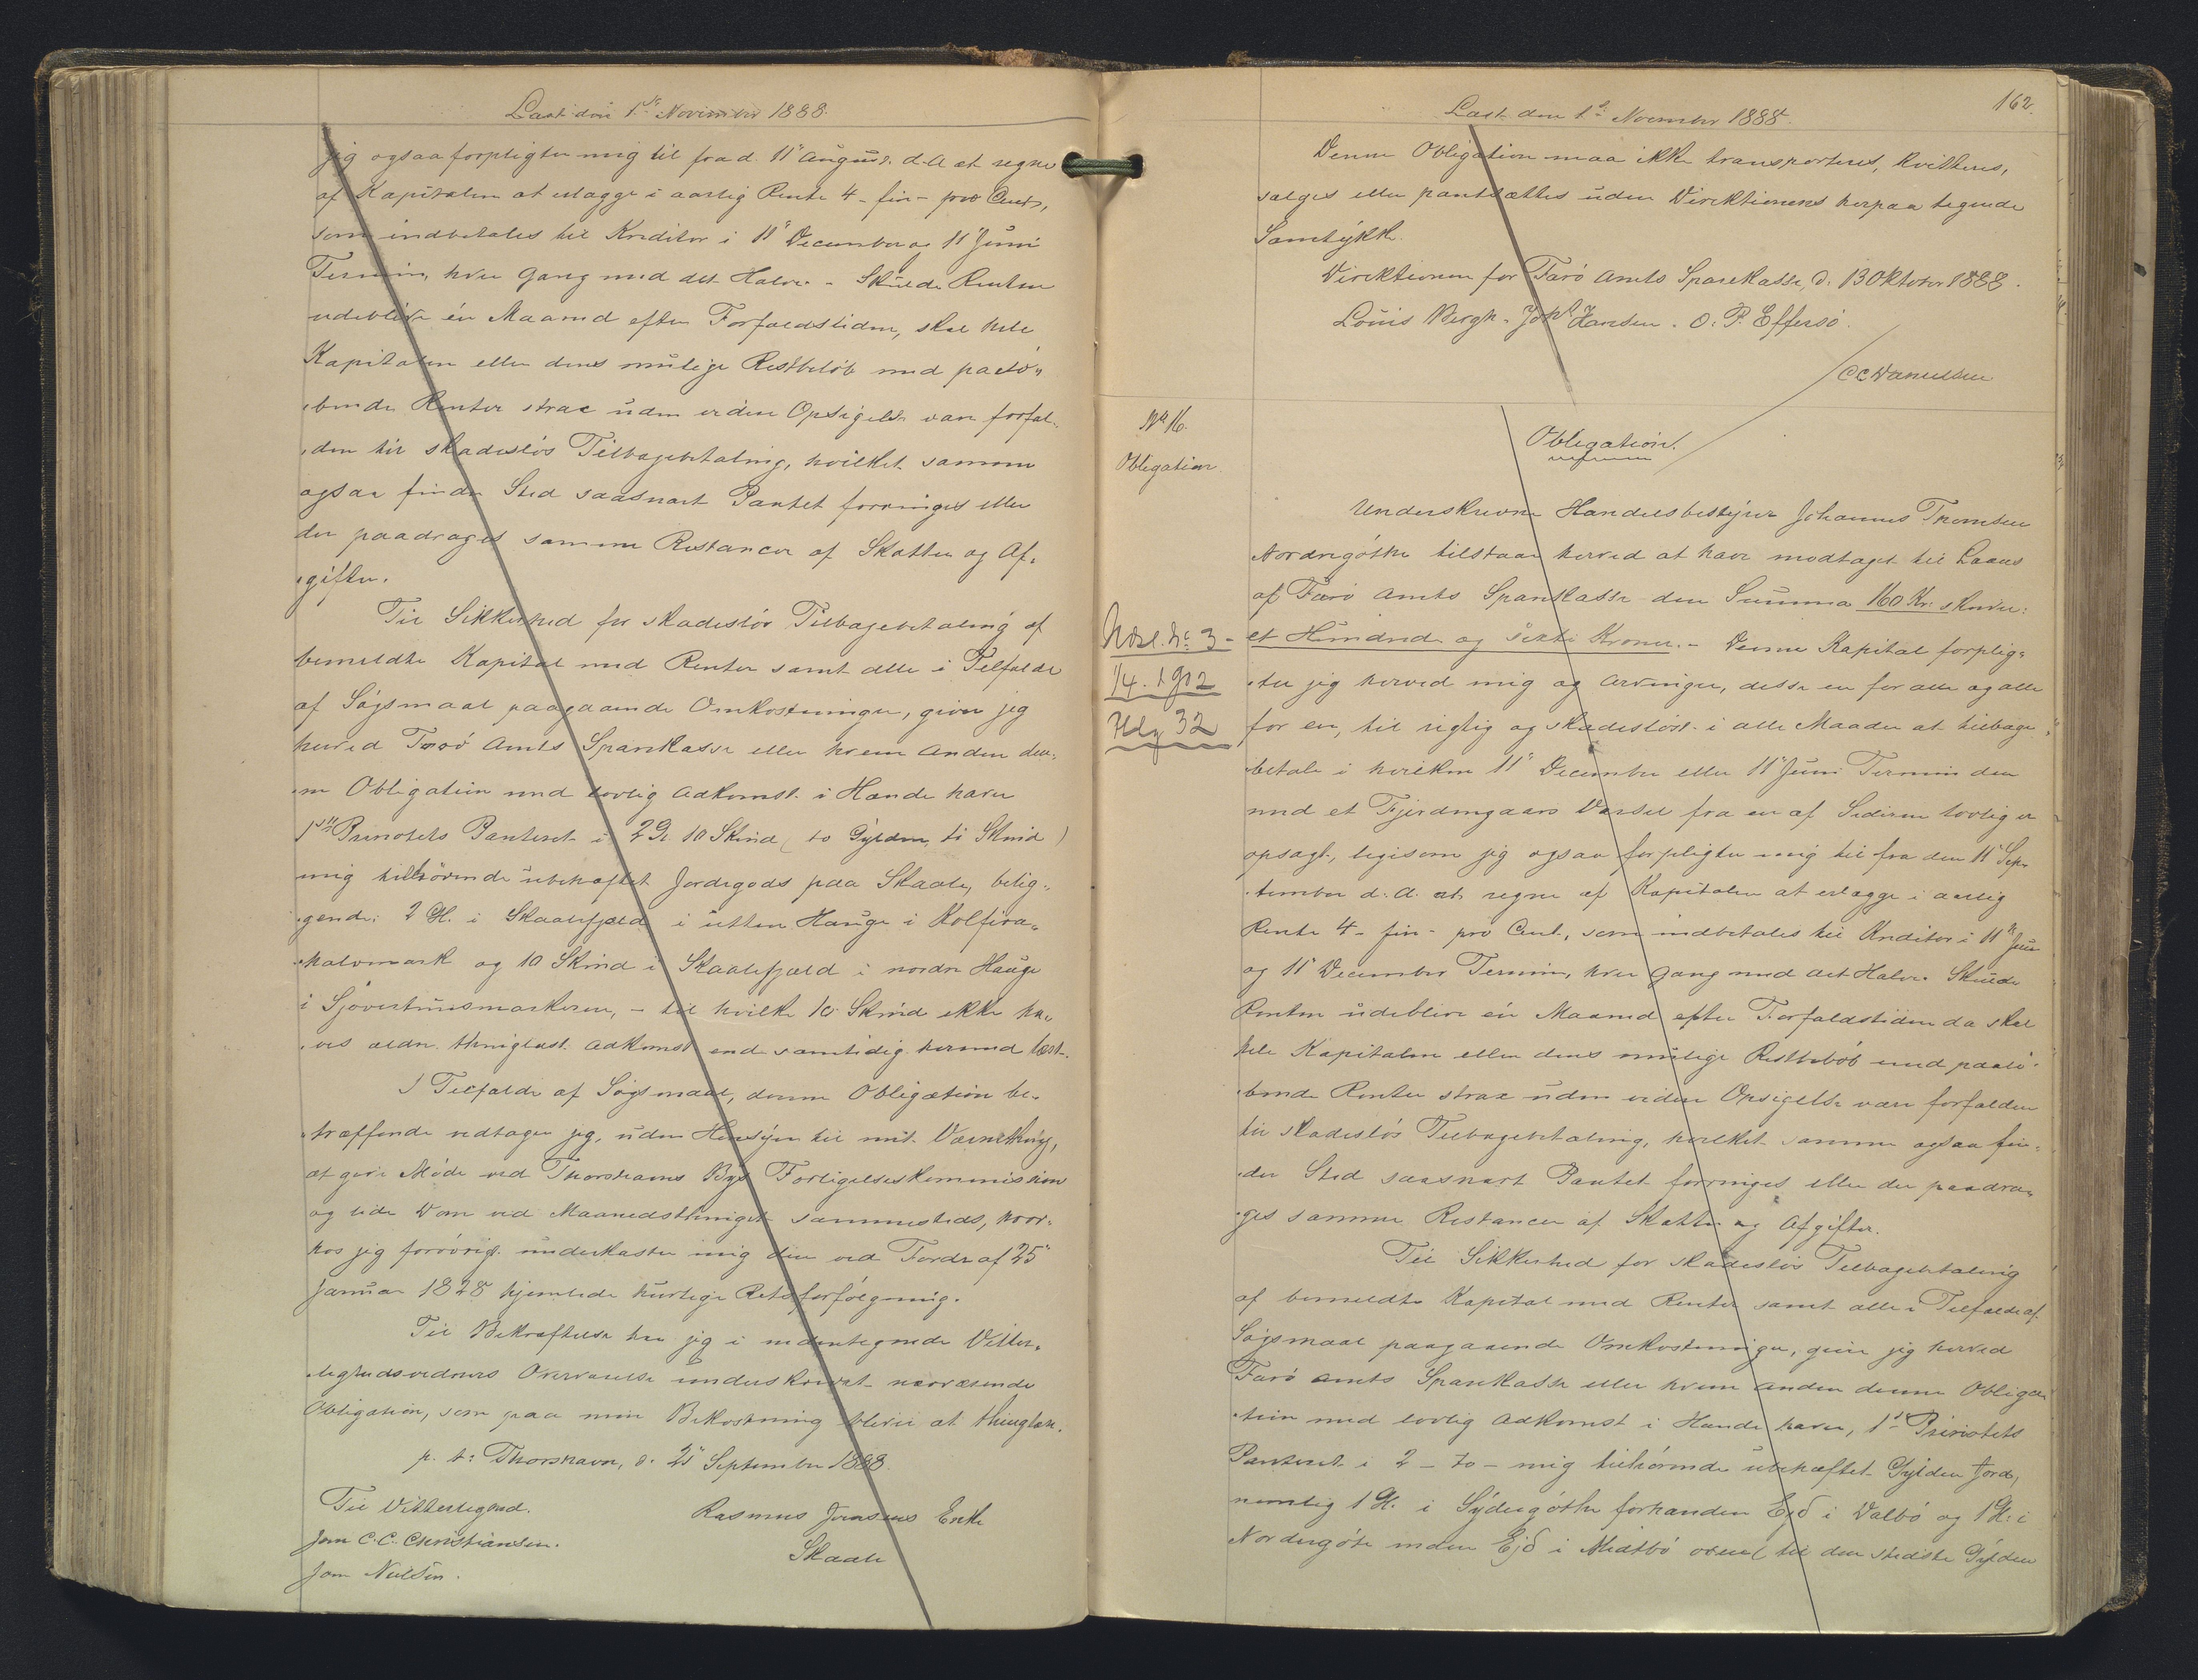 Læst den 1ste November 1888.
jeg ogsaa forpligter mig til fra d. 11' August d. A. at regne
af Kapitalen at erlægge i aarlig Rente 4 - fire - pro Cent,
som indbetales til Kreditor i 11' December og 11' Juni
Termin, hver Gang med det Halve. - Skulde Renten
udeblive én Maaned efter Forfaldstiden, skal hele
Kapitalen eller dens mulige Restbeløb med paalø-
bende Renter strax uden videre Opsigelse være forfal-
den til skadesløs Tilbagebetaling, hvilket samme
ogsaa finder Sted saasnart Pantet forringes eller
der paadrages samme Restancer af Skatter og Af-
gifter.
Til Sikkerhed for skadesløs Tilbagebetaling af
bemeldte Kapital med Renter samt alle i Tilfælde
af Søgsmaal paagaaende Omkostninger, giver jeg
herved Færø Amts Sparekasse eller hvem Anden den-
ne Obligation med lovlig Adkomst i Hænde haver
1ste Prioritets Panteret i 2 Gl. 10 Skind (to Gylden, ti Skind)
mig tilhørende ubehæftet Jordegods paa Skaale, belig-
gende: 2 Gl. i Skaalefjæld i utten Hauge i Kolfira-
halvmark og 10 Skind i Skaalefjæld i nordre Hauge
i Sjóvartúnsmarkeren, - til hvilke 10 Skind ikke ha-
ves ældre thinglæst Adkomst end samtidig hermed læst.
I Tilfælde af Søgsmaal, denne Obligation be-
træffende vedtager jeg, uden Hensyn til mit Værnething,
at give Møde ved Thorshavns Byes Forligelseskommission
og lide Dom ved Maanedsthinget sammesteds, hvor-
hos jeg forøvrigt underkaster mig den ved Fordr. af 25'
Januar 1828 hjemlede hurtige Retsforfølgning.
Til Bekræftelse har jeg i medentegnede Vitter-
lighedsvidners Overværelse underskrevet nærværende
Obligation, som paa min Bekostning bliver at thinglæse.
p. t: Thorshavn, d. 21' September 1888.
Til Vitterlighed.
Rasmus Joensens Enke
Joen C. C. Christiansen.
Skaale
Joen Nielsen.
Læst den 1ste November 1888.
162.
Denne Obligation maa ikke transporteres, kvitteres,
sælges eller pantsættes uden Direktionens herpaa tegnede
Samtykke.
Direktionen for Færø Amts Sparekasse, d. 13 Oktober 1888.
Louis Bergh. Johs Hansen. O. P. Effersø.
C C Danielsen
No 16.
Obligation.
Obligation!
Underskrevne Handelsbestyrer Johannes Thomsen
Nordregøthe tilstaar herved at have modtaget til Laans
af Færø Amts Sparekasse den Summa 160 Kr. skriver:
et Hundrede og sexti Kroner. - Denne Kapital forplig-
ter jeg herved mig og Arvinger, disse en for alle og alle
for en, til rigtig og skadesløst i alle Maader at tilbage-
betale i hvilken 11' December eller 11' Juni Termin den
med et Fjerdingaars Varsel fra en af Siderne lovlig er
opsagt, ligesom jeg ogsaa forpligter mig til fra den 11' Sep-
tember d. A. at regne af Kapitalen at erlægge i aarlig
Rente 4 - fire - pro Cent, som indbetales til Kreditor i 11' Juni
og 11' December Termin, hver Gang med det Halve. Skulde
Renten udeblive én Maaned efter Forfaldstiden da skal
hele Kapitalen eller dens mulige Restbeløb med paalø-
bende Renter strax uden videre Opsigelse være forfalden
til skadesløs Tilbagebetaling, hvilket samme ogsaa fin-
der Sted saasnart Pantet forringes eller der paadra-
ges samme Restancer af Skatter og Afgifter.
Til Sikkerhed for skadesløs Tilbagebetaling
af bemeldte Kapital med Renter samt alle i Tilfælde af
Søgsmaal paagaaende Omkostninger, giver jeg herved
Færø Amts Sparekasse eller hvem Anden denne Obliga-
tion med lovlig Adkomst i Hænde haver, 1ste Prioritets
Panteret i 2 - to - mig tilhørende ubehæftet Gylden Jord,
nemlig 1 Gl. i Sydregøthe forhanden Ejð i Dalbø og 1 Gl. i
Nordregøte inden Ejð i Midtbø til den sidste Gylden
Udsl. No 3 -
1/4. 1902
Udg 32